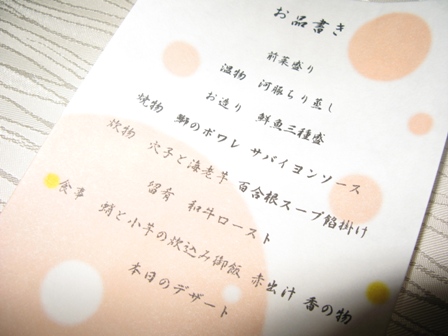 お品書き
前菜盛り
温物 河豚ちり蒸し
お造り 鮮魚三種盛
焼物 鰤のポワレ サバイヨンソース
炊物 穴子と海老芋 百合根スープ餡掛け
留肴 和牛ロースト
食事 蛸と小芋の炊込み御飯 赤出汁 香の物
本日のデザート